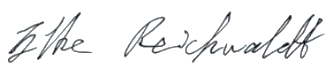 Elke Reichwaldt